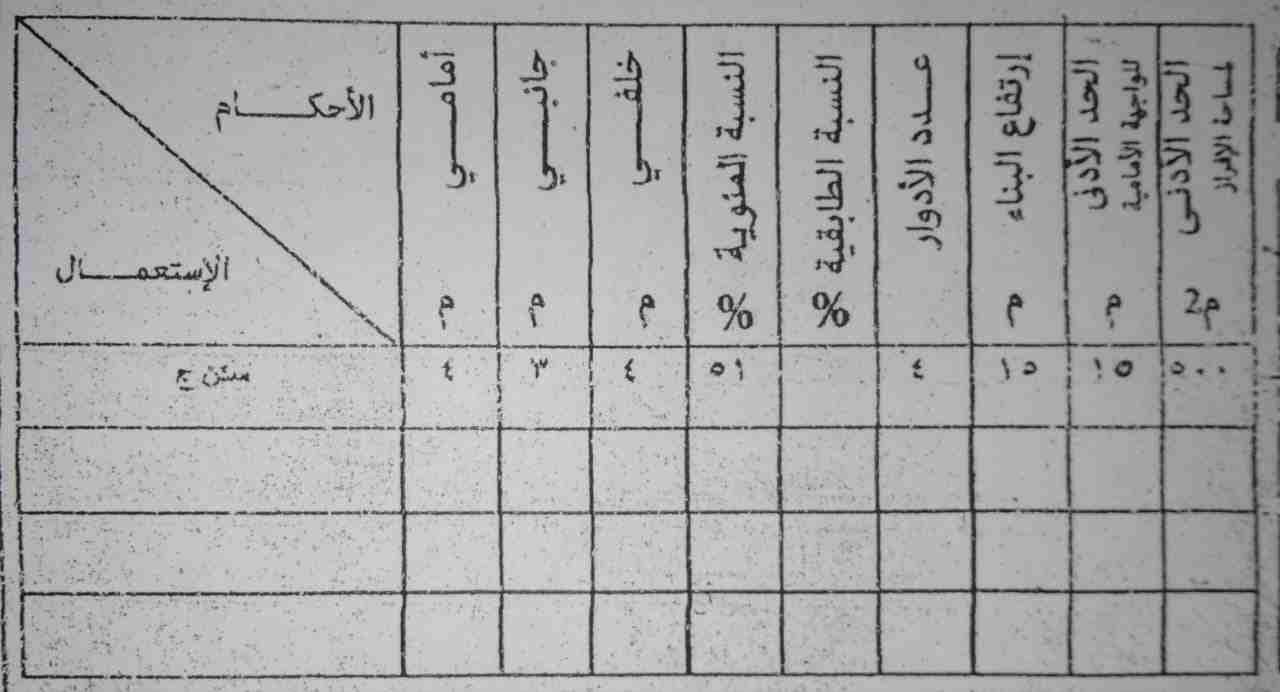 الأحكــــام
الإستعمـــال
أمامــي م
جانبــي م
خلفــي م
النسبة المئوية %
النسبة الطابقية %
عــدد الأدوار
إرتفاع البناء م
الحد الأدنى للواجهة الأمامية م
الحد الأدنى لمساحة الإفراز م2
سكن ج ٤ ٣ ٤ ٥١ ٤ ١٥ ١٥ ٥٠٠